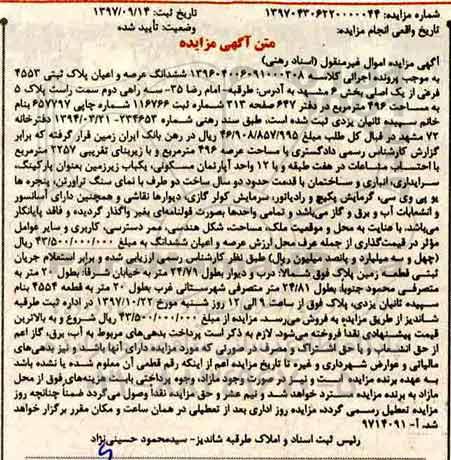 شماره مزایده: ۱۳۹۷۰۴۳۰۶۲۲۰۰۰۰۰۴۴ تاریخ ثبت: ۱۳۹۷/۰۹/۱۴
تاریخ واقعی انجام مزایده: وضعیت: تأیید شده
متن آگهی مزایده
آگهی مزایده اموال غیرمنقول (اسناد رهنی)
به موجب پرونده اجرائی کلاسه ۱۳۹۶۰۴۰۰۶۰۹۱۰۰۰۳۰۸ ششدانگ عرصه و اعیان پلاک ثبتی ۴۵۵۳
فرعی از یک اصلی بخش ۶ مشهد به آدرس: طرقبه- امام رضا ۳۵- سه راهی دوم سمت راست پلاک ۵
به مساحت ۴۹۶ مترمربع در دفتر ۶۴۷ صفحه ۳۱۳ شماره ثبت ۱۱۶۷۶۶ شماره چاپی ۶۵۷۷۹۷ بنام
خانم سپیده ثانیان یزدی ثبت شده است، طبق سند رهنی شماره ۲۳۴۶۵۳- ۱۳۹۴/۰۳/۲۱ دفترخانه
۷۲ مشهد در قبال کل طلب مبلغ ۴۶/۹۰۸/۸۵۷/۹۹۵ ریال در رهن بانک ایران زمین قرار گرفته که برابر
گزارش کارشناس رسمی دادگستری با مساحت عرصه ۴۹۶ مترمربع و با زیربنای تقریبی ۲۲۵۷ مترمربع
با احتساب مشاعات در هفت طبقه و با ۱۲ واحد آپارتمان مسکونی، یکباب زیرزمین بعنوان پارکینگ،
سرایداری، انباری و ساختمان با قدمت حدود دو سال ساخت دو طرف با نمای سنگ تراورتن، پنجره ها
یو پی وی سی، گرمایش پکیج و رادیاتور، سرمایش کولر گازی، دیوارها نقاشی و همچنین دارای آسانسور
و انشعابات آب و برق و گاز می‌باشد و تمامی واحدها بصورت قولنامه‌ای بغیر واگذار گردیده و فاقد پایانکار
می‌باشد، با عنایت به محل و موقعیت ملک، مساحت، شکل هندسی، ممر دسترسی، کاربری و سایر عوامل
مؤثر در قیمت‌گذاری از جمله عرف محل ارزش عرصه و اعیان ششدانگ به مبلغ ۴۳/۵۰۰/۰۰۰/۰۰۰ ریال
(چهل و سه میلیارد و پانصد میلیون ریال) طبق نظر کارشناس رسمی ارزیابی شده و برابر استعلام جریان
ثبتی قطعات زمین پلاک فوق شمالا: درب و دیوار بطول ۲۴/۷۹ متر به خیابان شرقا: بطول ۲۰ متر به
متصرفی محمود جنوبا: بطول ۲۴/۸۱ متر متصرفی شهرستانی غرب بطول ۲۰ متر به قطعه ۴۵۵۴ بنام
سپیده ثانیان یزدی، پلاک فوق از ساعت ۹ الی ۱۲ روز شنبه مورخ ۱۳۹۷/۱۰/۲۲ در اداره ثبت طرقبه
شاندیز از طریق مزایده به فروش می‌رسد. مزایده از مبلغ ۴۳/۵۰۰/۰۰۰/۰۰۰ ریال شروع و به بالاترین
قیمت پیشنهادی نقدا فروخته می‌شود. لازم به ذکر است پرداخت بدهی‌های مربوط به آب، برق، گاز اعم
از حق انشعاب و یا حق اشتراک و مصرف در صورتی که مورد مزایده دارای آنها باشد و نیز بدهی‌های
مالیاتی و عوارض شهرداری و غیره تا تاریخ مزایده اعم از اینکه رقم قطعی آن معلوم شده یا نشده باشد
به عهده برنده مزایده است و نیز در صورت وجود مازاد، وجوه پرداختی بابت هزینه‌های فوق از محل
مازاد به برنده مزایده مسترد خواهد شد و نیم عشر و حق مزایده نقدا وصول می‌گردد ضمنا چنانچه روز
مزایده تعطیل رسمی گردد، مزایده روز اداری بعد از تعطیلی در همان ساعت و مکان مقرر برگزار خواهد
شد. آ- ۹۷۱۴۰۹۱
رئیس ثبت اسناد و املاک طرقبه شاندیز- سیدمحمود حسینی‌نژاد